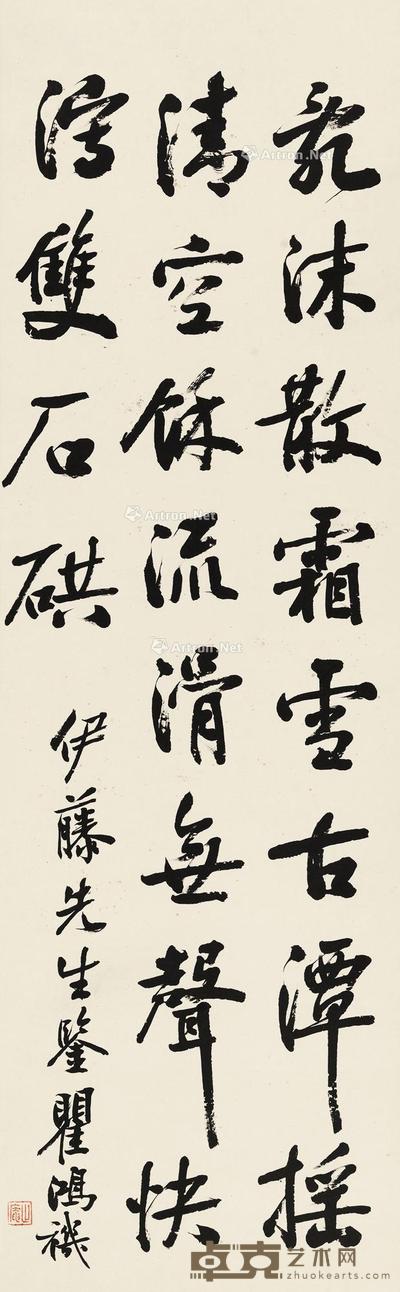 亂沫散霜雪古潭搖
清空餘流滑無聲快
瀉雙石硔
伊藤先生鑒瞿鴻禨
Artron.Net
Artron.Net
Artron.Net
卓克艺术网
www.zhuokearts.com